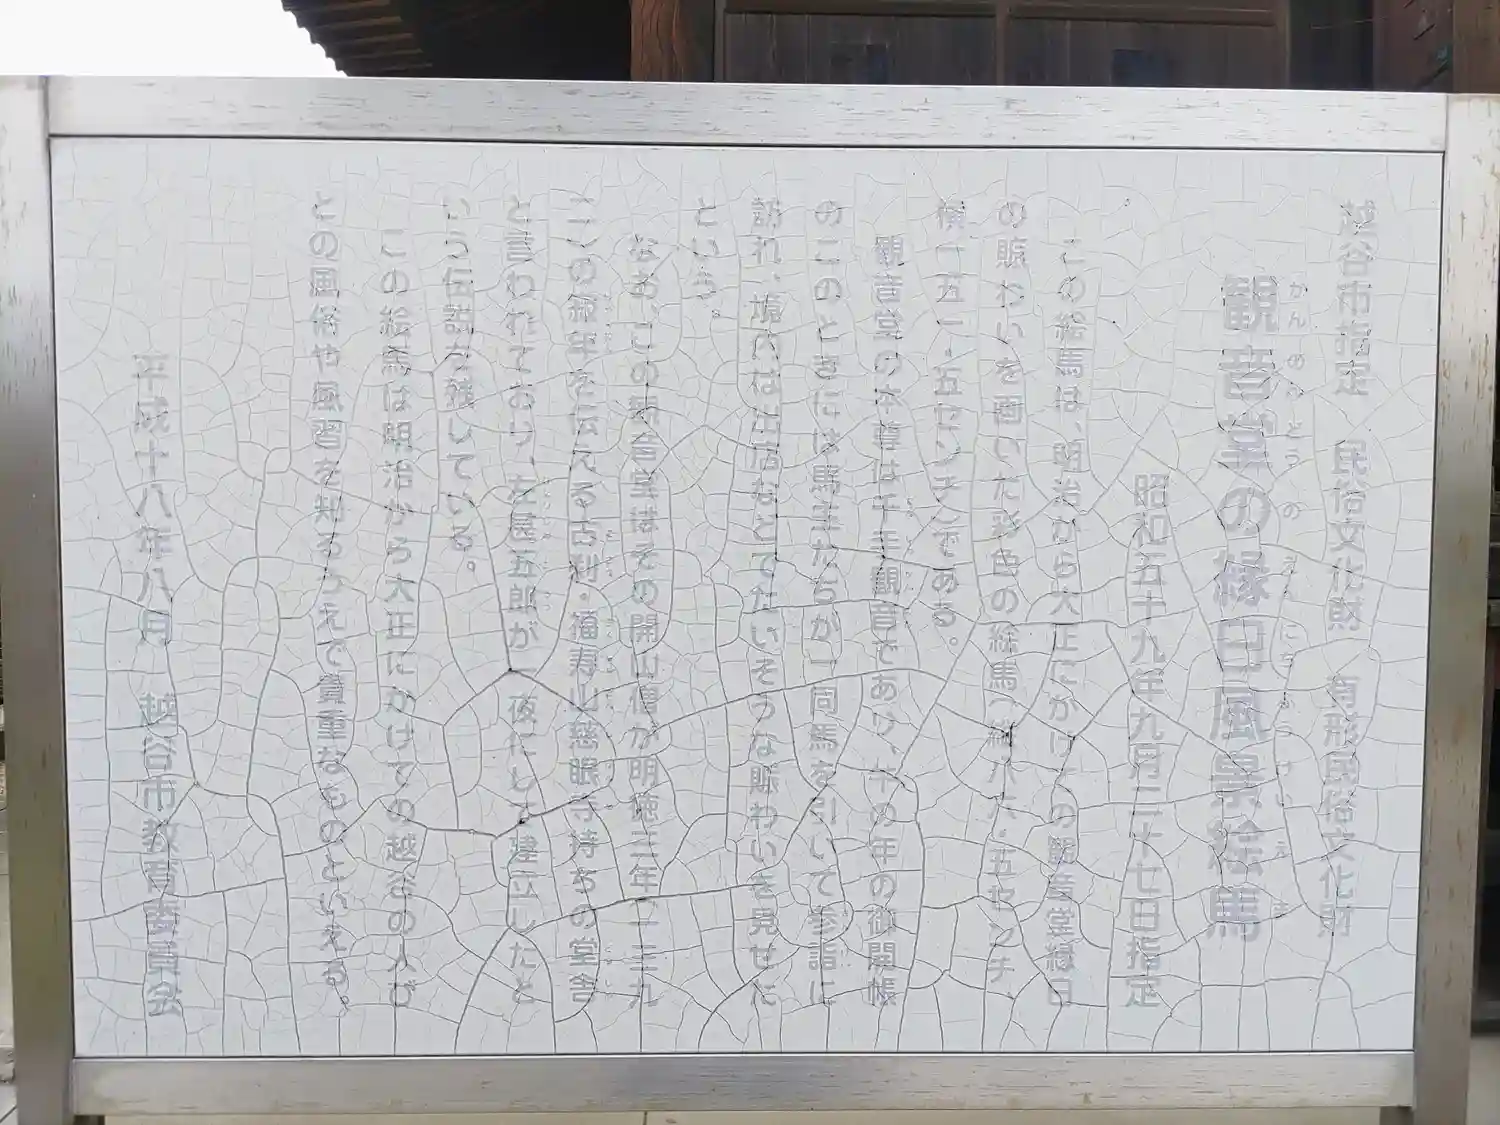 越谷市指定 民俗文化財 有形民俗文化財
かんのんどうのえんにちふうけいえま
観音堂の縁日風景絵馬
昭和五十九年九月二十七日指定
この絵馬は、明治から大正にかけての観音堂縁日
の賑わいを画いた彩色の絵馬(縦八六・五センチ、
横一五一・五センチ)である。
観音堂の本尊は千手観音であり、午の年の御開帳
のこのときには馬主たちが一同馬を引いて参詣に
訪れ、境内は出店などでたいそうな賑わいを見せた
という。
なお、この観音堂はその開山僧が明徳三年(一三九
二)の寂年を伝える古刹・福寿山慈眼寺持ちの堂舎
と言われており、左甚五郎が一夜にして建立したと
いう伝説を残している。
この絵馬は明治から大正にかけての越谷の人び
との風俗や風習を知るうえで貴重なものといえる。
平成十八年八月 越谷市教育委員会